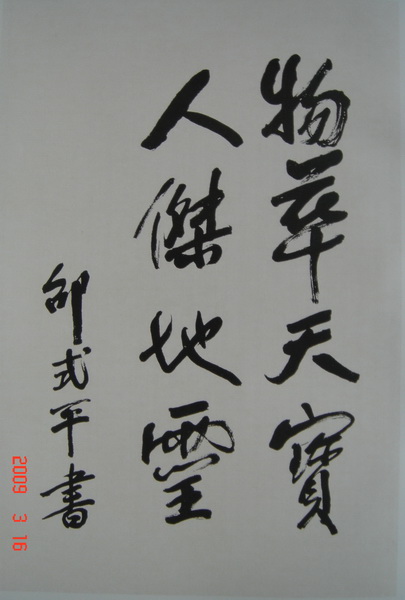 物華天寶
人傑地靈
邵式平書
2009 3 16